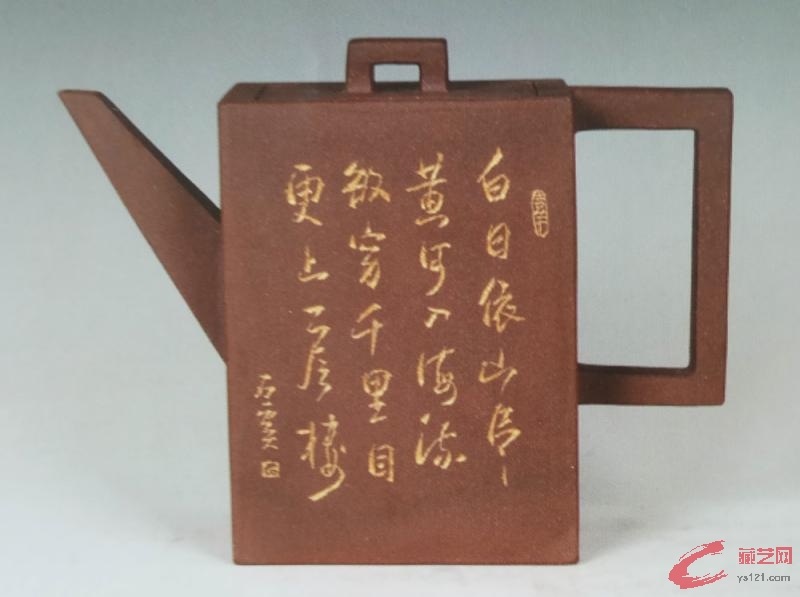 白日依山尽
黄河入海流
欲穷千里目
更上一层楼
藏艺网
ys121.com